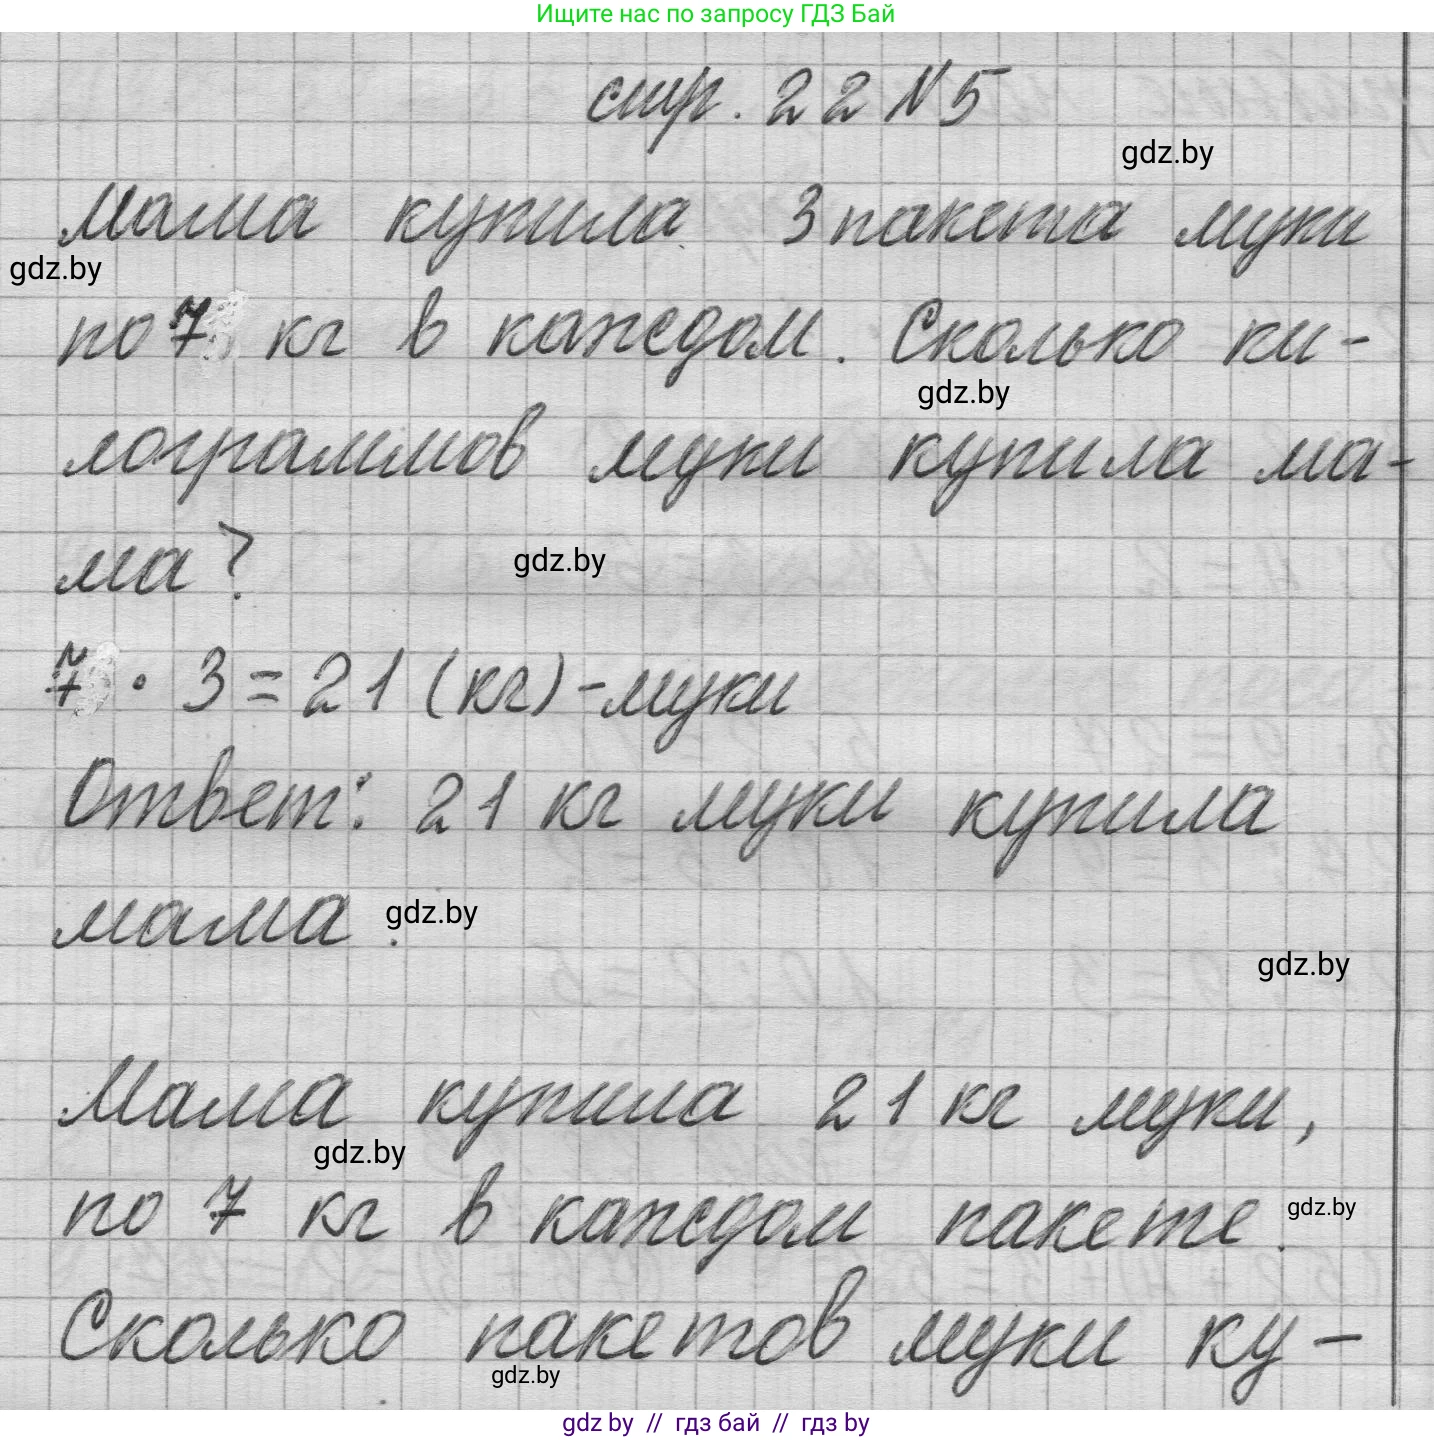 Ищите нас по запросу ГДЗ Бай
стр. 22 N 5
gdz.by
Мама купила 3 пакета муки
gdz.by
по 7 кг в каждом. Сколько ки-
gdz.by
лограммов муки купила ма-
ма?
gdz.by
7 · 3 = 21 (кг) - муки
Ответ: 21 кг муки купила
мама.
gdz.by
gdz.by
Мама купила 21 кг муки,
gdz.by
по 7 кг в каждом пакете.
gdz.by
Сколько пакетов муки ку-
gdz.by
gdz by // гдз бай // гдз by